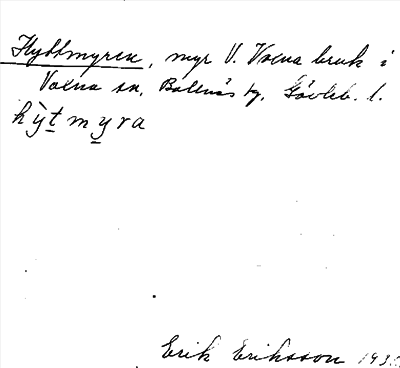 Hyttmyren, myr V. Voxna bruk i
Voxna sn, Bollnäs tg. Gävleb. l.
hy̆tmyra
Erik Eriksson 193